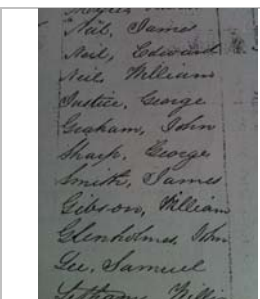 Nail, James
Neil, Edward
Neil, William
Justice, George
Graham, John
Sharp, George
Smith, James
Gibson, William
Glenholmes, John
Gee, Samuel